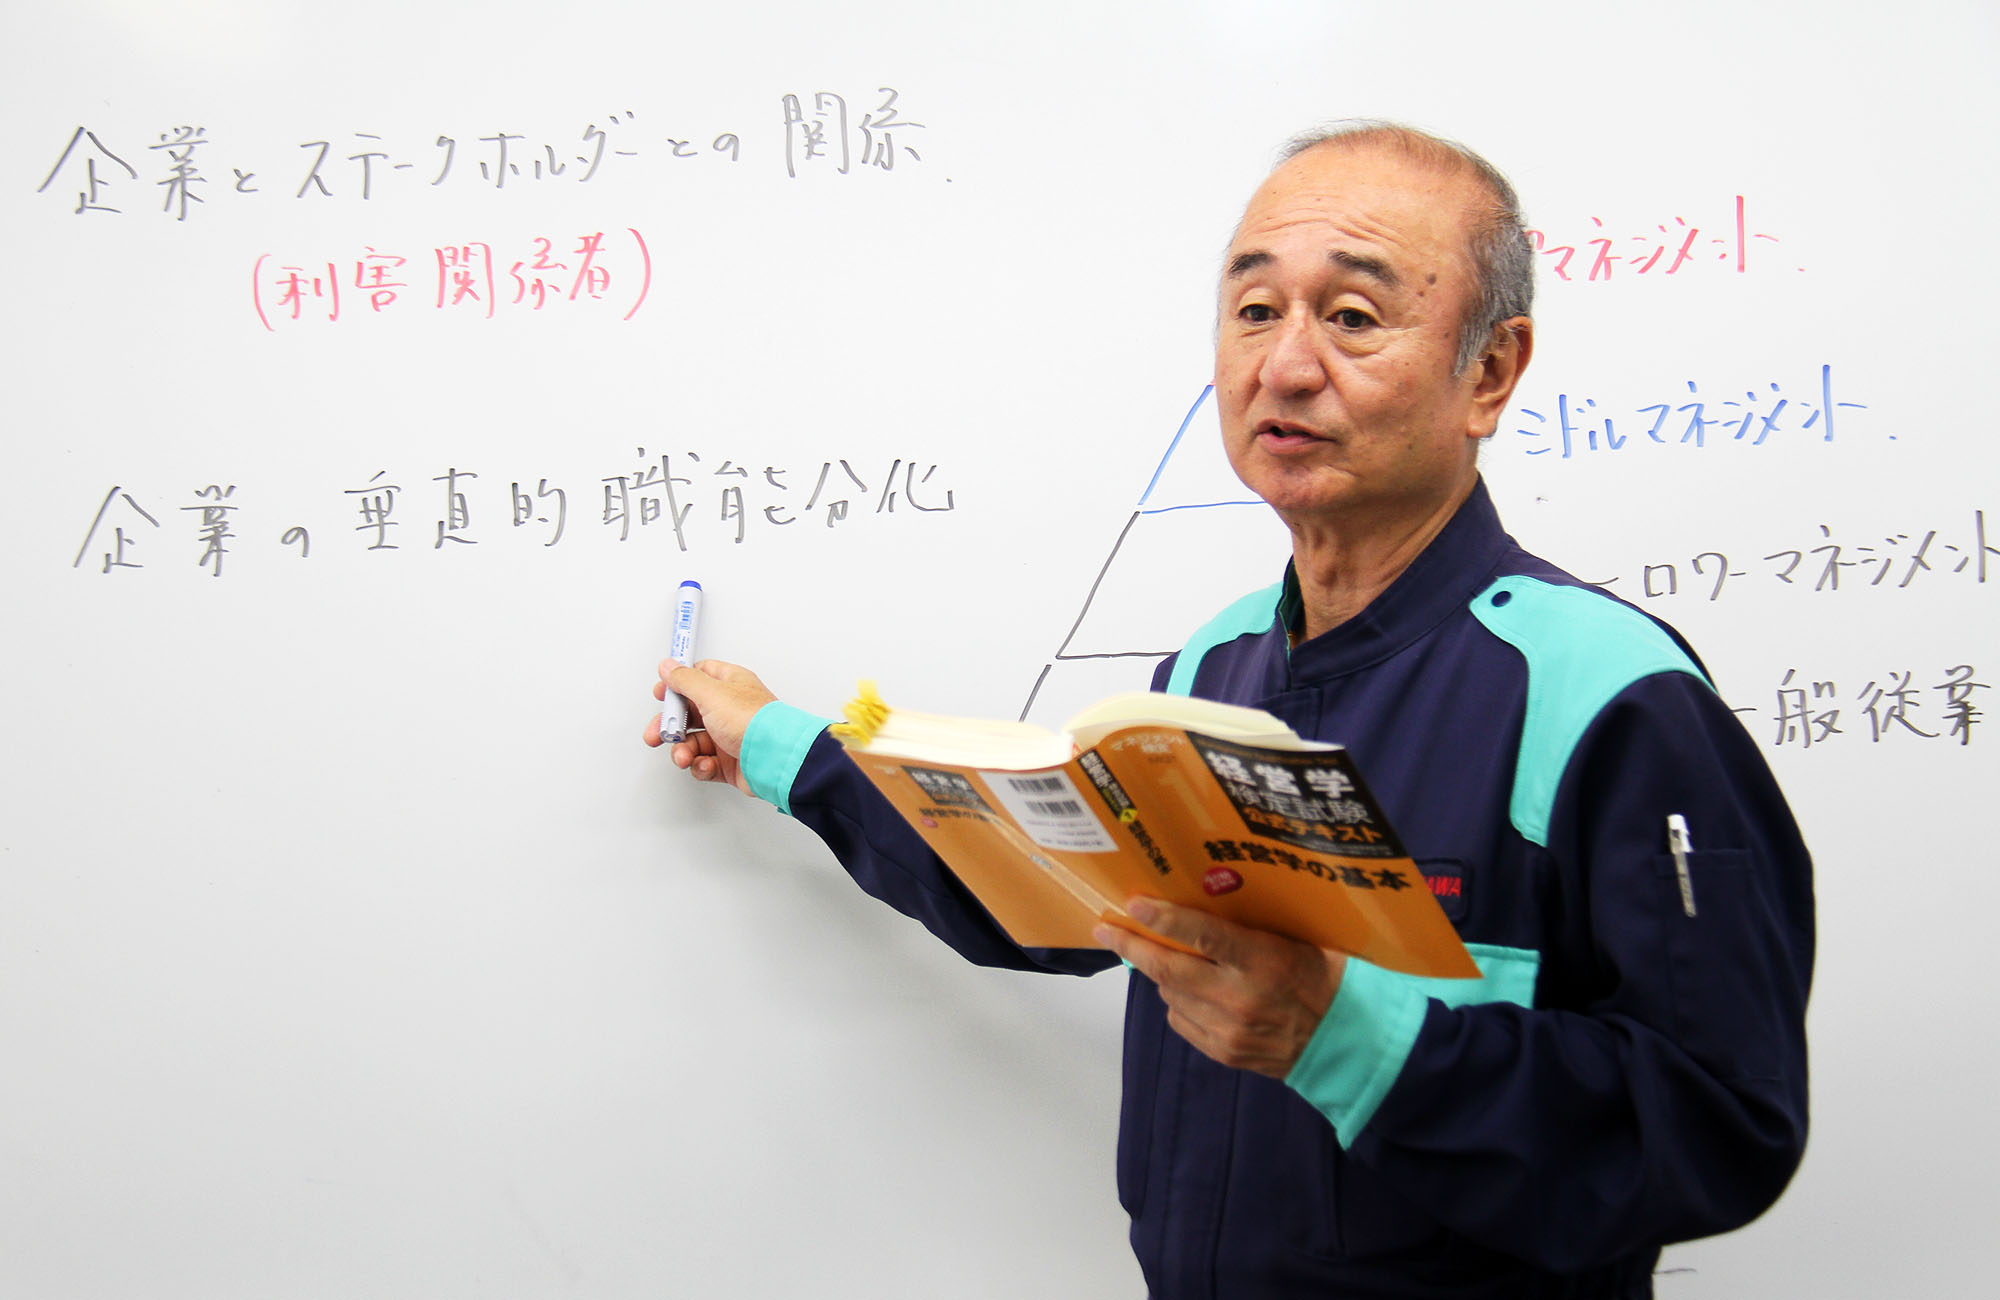 企業とステークホルダーとの関係.
(利害関係者)
企業の垂直的職能分化
マネジメント.
ミドルマネジメント.
ロワーマネジメント
一般従業
マネジメント検定
経営学
検定試験
公式テキスト
経営学の基本
1
経営学
AWA